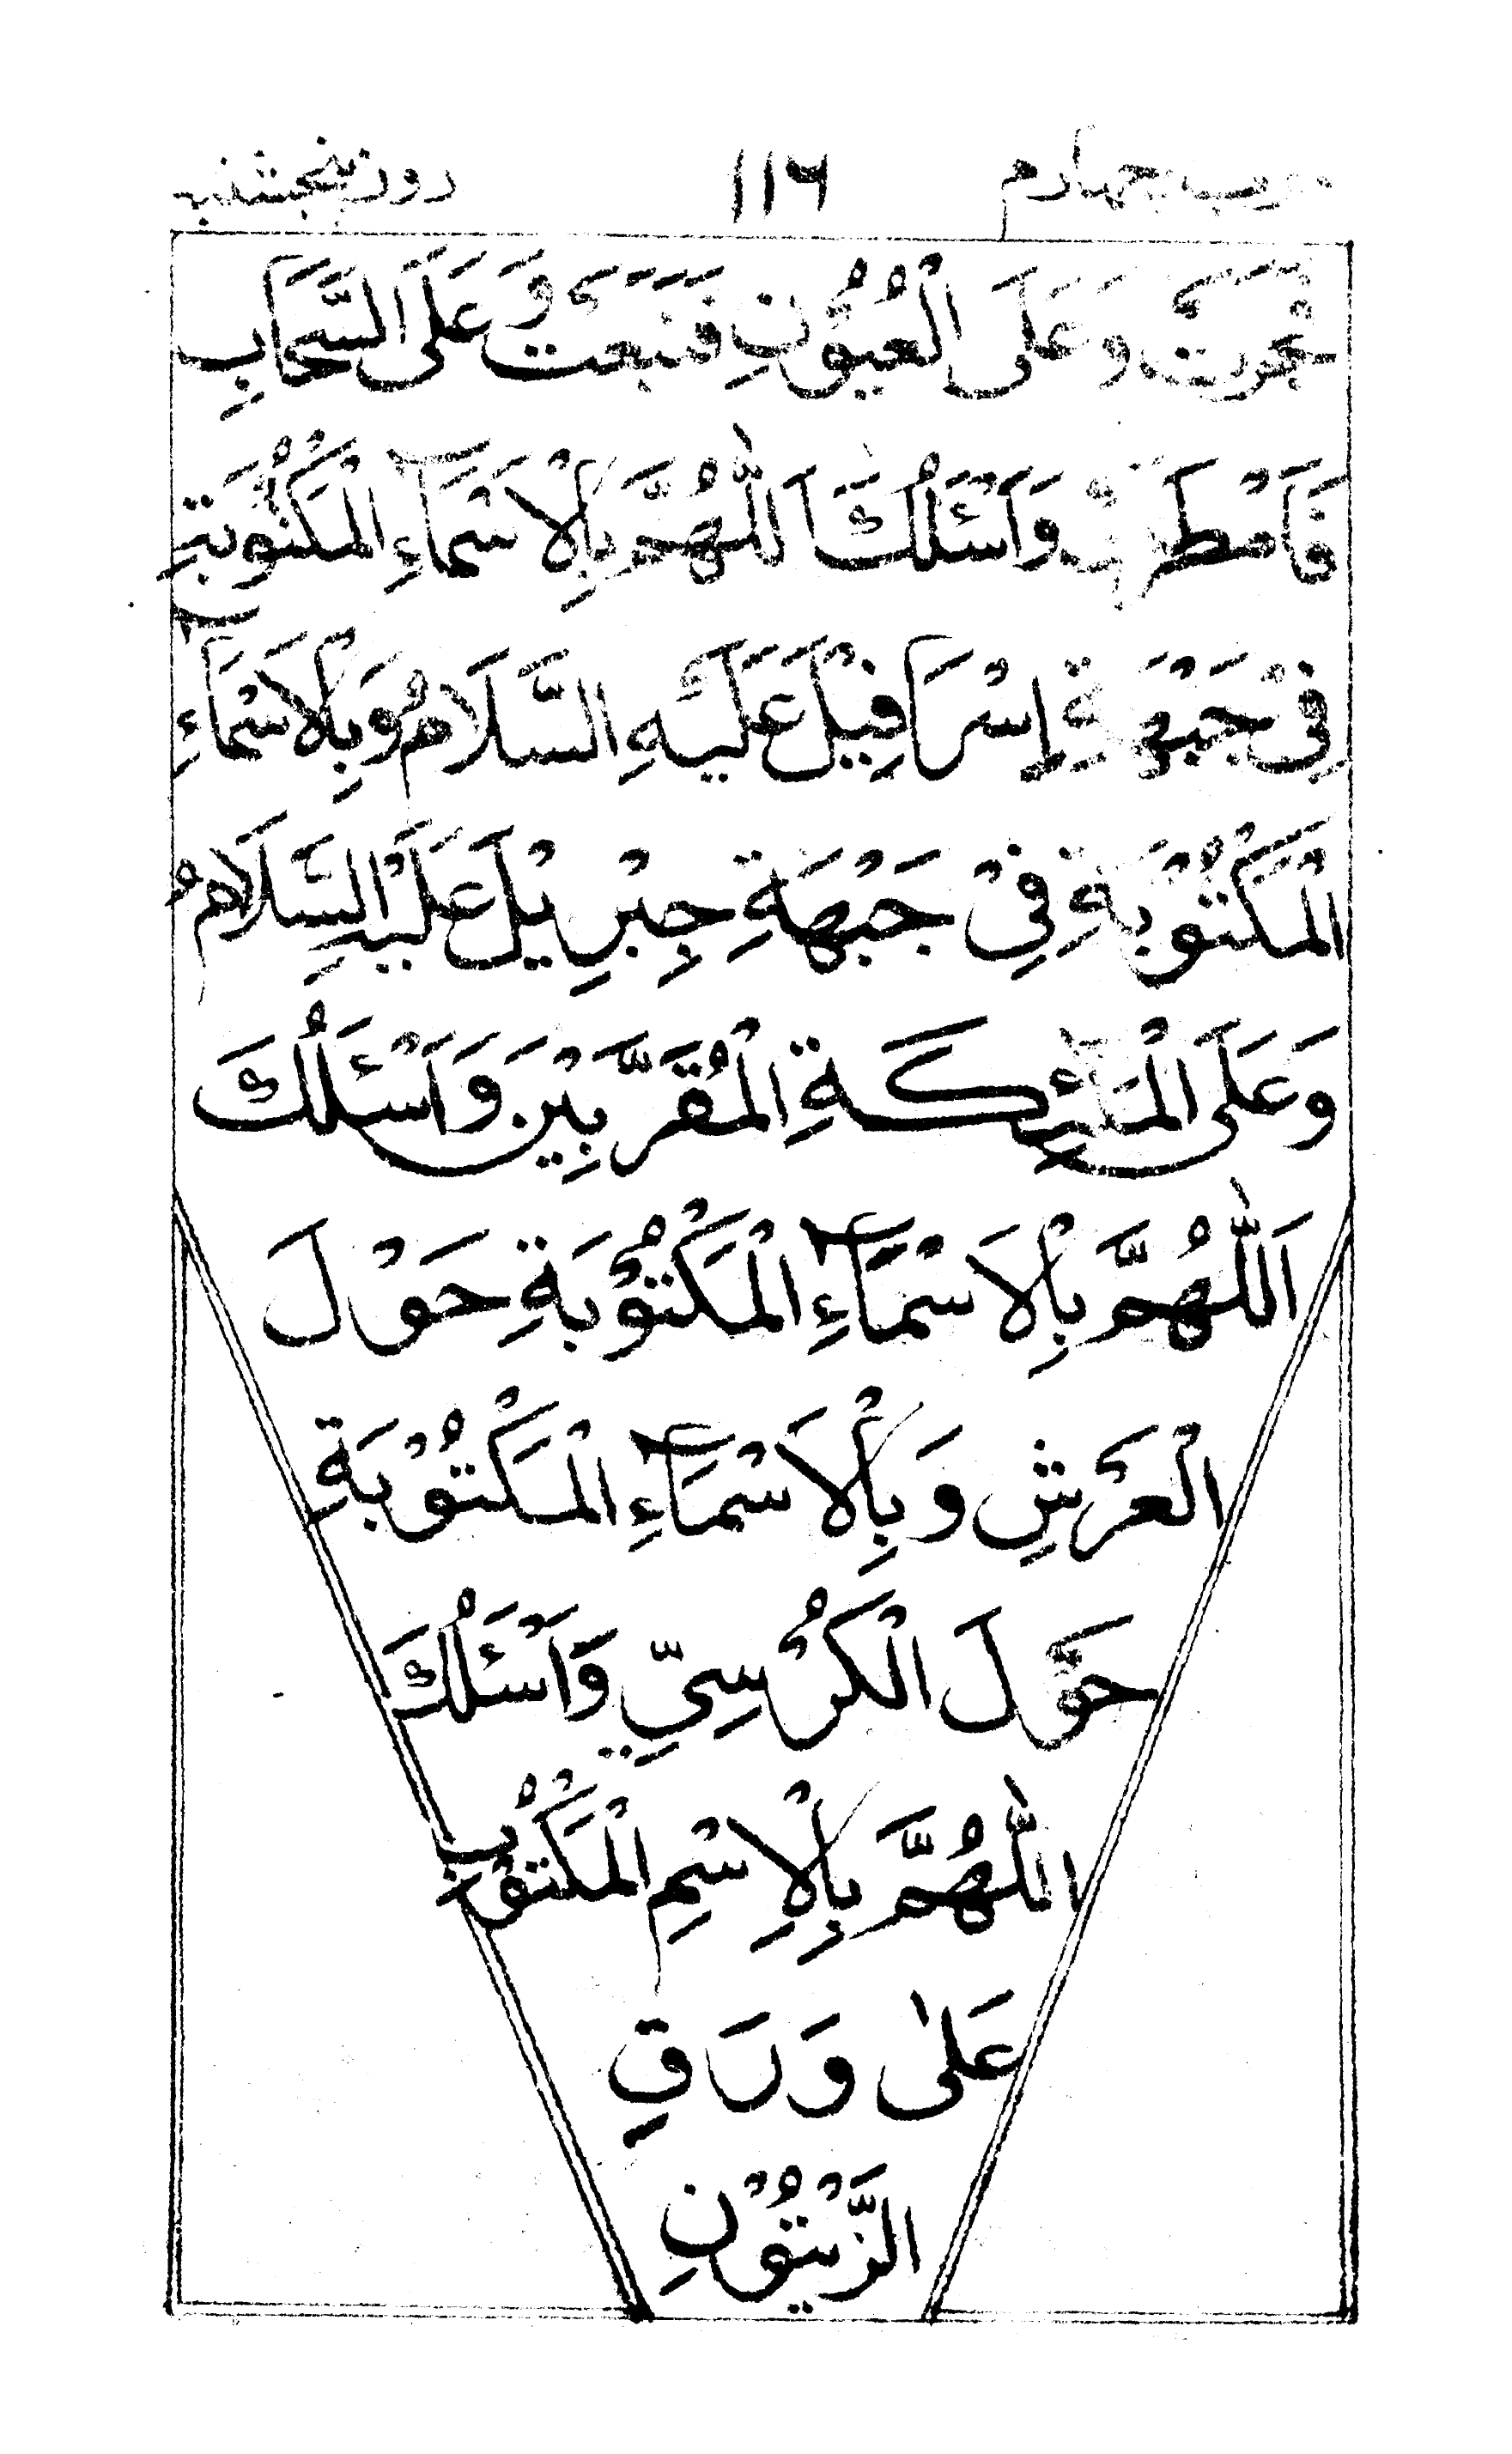 حزب چهارم ۱۱۶ روز پنجشنبه
فَجَرَتْ وَعَلَى الْعُيُوْنِ فَنَبَعَتْ وَعَلَى السَّحَابِ
فَاَمْطَرَتْ وَاَسْئَلُكَ اللّٰهُمَّ بِالْاَسْمَآءِ الْمَكْتُوْبَةِ
فِيْ جَبْهَةِ اِسْرَافِيْلَ عَلَيْهِ السَّلَامُ وَبِالْاَسْمَآءِ
الْمَكْتُوْبَةِ فِيْ جَبْهَةِ جِبْرِيْلَ عَلَيْهِ السَّلَامُ
وَعَلَى الْمَلٰٓئِكَةِ الْمُقَرَّبِيْنَ وَاَسْئَلُكَ
اَللّٰهُمَّ بِالْاَسْمَآءِ الْمَكْتُوْبَةِ حَوْلَ
الْعَرْشِ وَبِالْاَسْمَآءِ الْمَكْتُوْبَةِ
حَوْلَ الْكُرْسِيِّ وَاَسْئَلُكَ
اللّٰهُمَّ بِالْاِسْمِ الْمَكْتُوْبِ
عَلٰى وَرَقِ
الزَّيْتُوْنِ